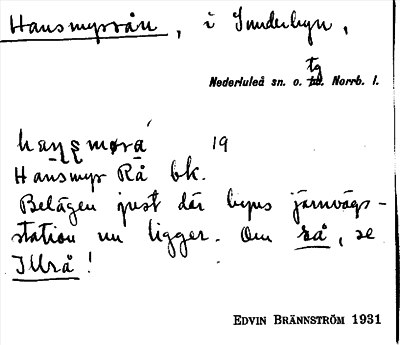 Hansmyrrån, i Sunderbyn,
tg
Nederluleå sn. o. hd. Norrb. l.
hansmøra 19
Hansmyr Rå bk.
Belägen just där byns järnvägs-
station nu ligger. Om rå, se
Illrå!
EDVIN BRÄNNSTRÖM 1931